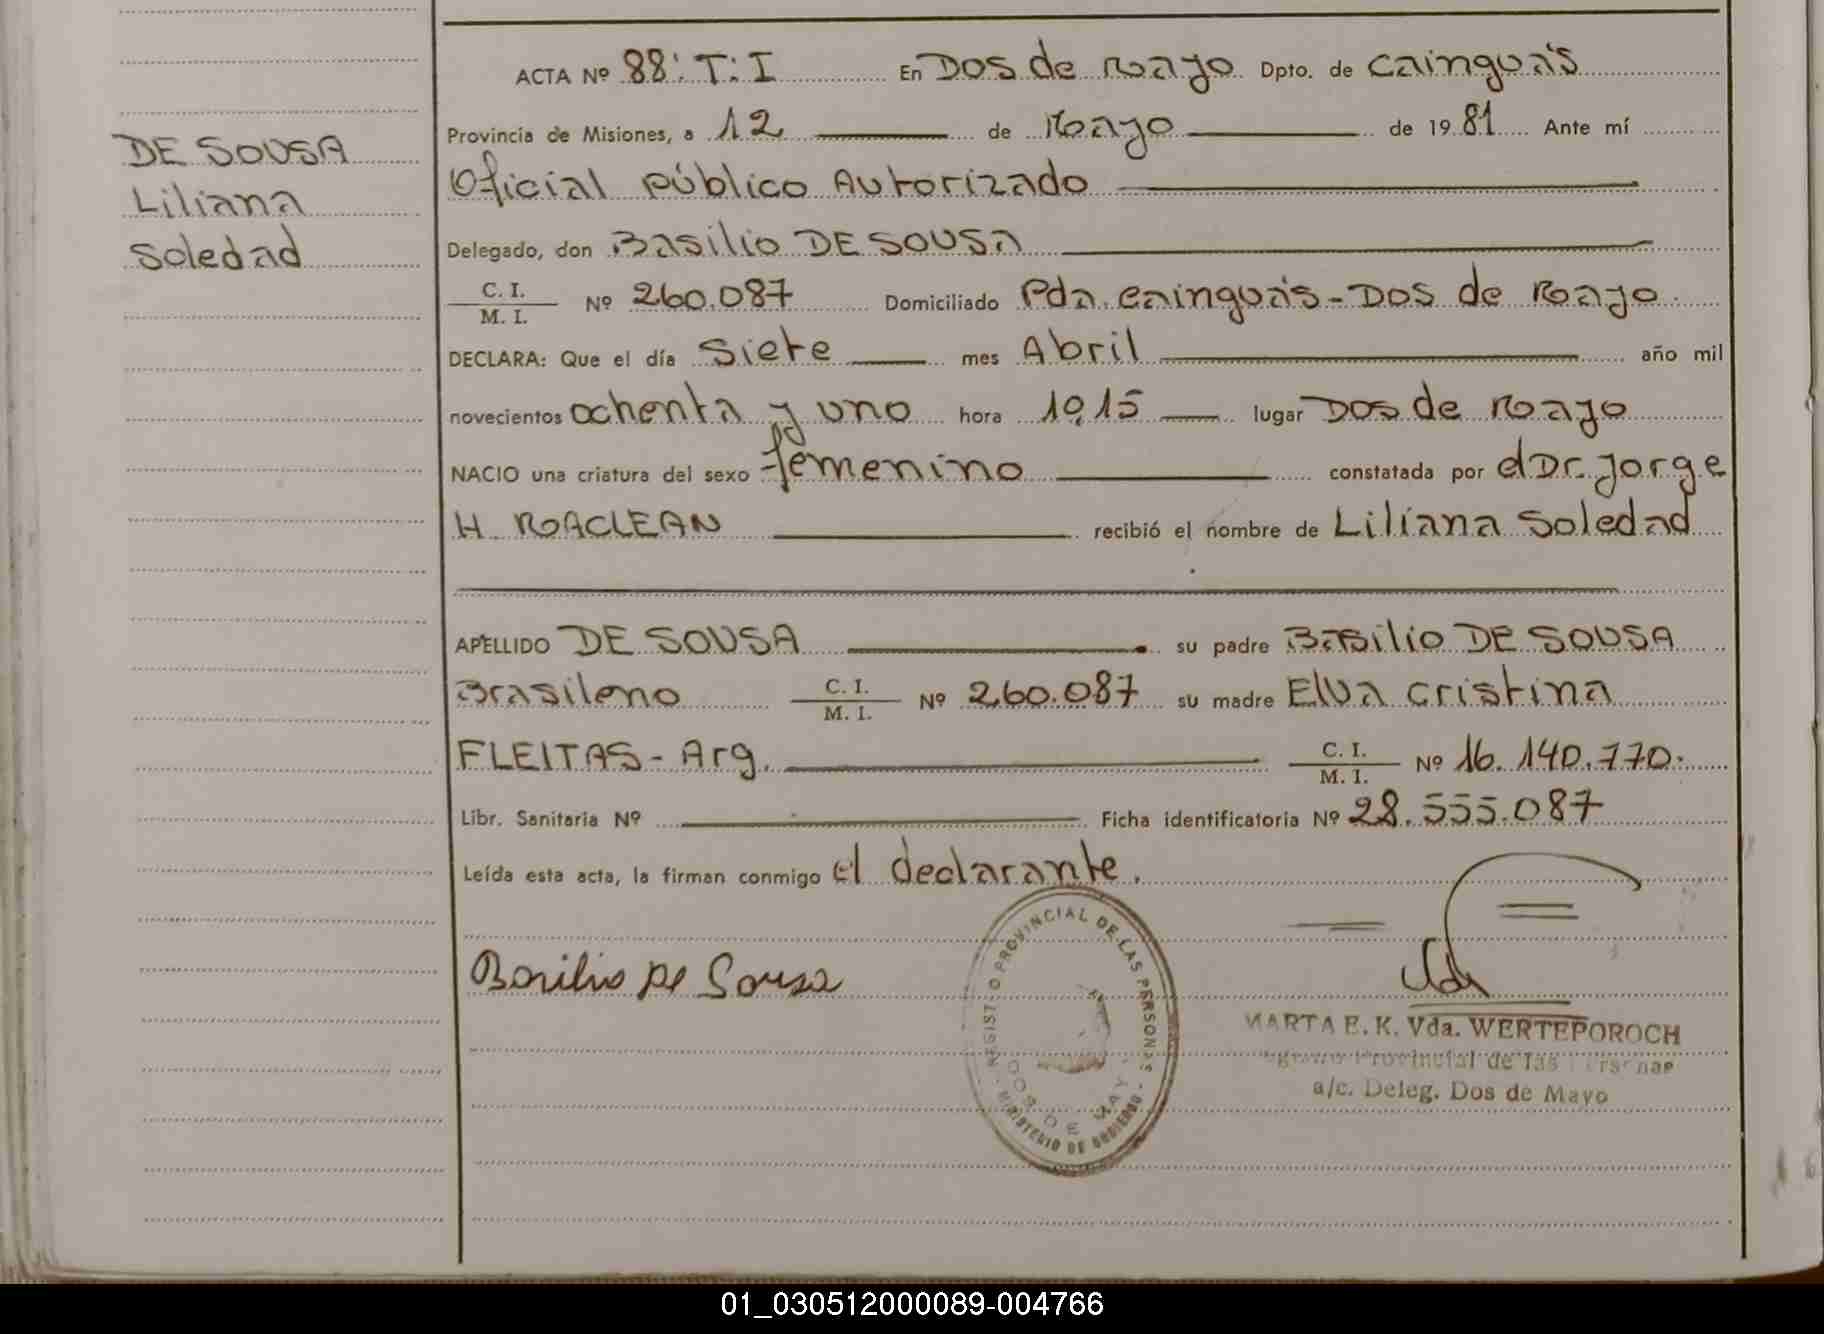 ACTA Nº 88: T: I En DOS de Mayo Dpto. de Cainguás
Provincia de Misiones, a 12 de Mayo de 1981 Ante mí
DE SOUSA
Oficial Público Autorizado
Liliana
Soledad
Delegado, don Basilio DE SOUSA
C. I. / M. I. Nº 260.087 Domiciliado Pda. Cainguás - DOS de Mayo
DECLARA: Que el día Siete mes Abril año mil
novecientos ochenta y uno hora 19,15 lugar DOS de Mayo
NACIO una criatura del sexo femenino constatada por el Dr. Jorge
H. MACLEAN recibió el nombre de Liliana Soledad
APELLIDO DE SOUSA su padre Basilio DE SOUSA
Brasileno C. I. / M. I. Nº 260.087 su madre Elva Cristina
FLEITAS - Arg. C. I. / M. I. Nº 16.140.770.
Libr. Sanitaria Nº Ficha identificatoria Nº 28.555.087
Leída esta acta, la firman conmigo el declarante.
Basilio De Sousa
REGISTRO PROVINCIAL DE LAS PERSONAS
DOS DE MAYO
MINISTERIO DE GOBIERNO
MARTA E. K. Vda. WERTEPOROCH
Provincial de las Personas
a/c. Deleg. Dos de Mayo
01_030512000089-004766